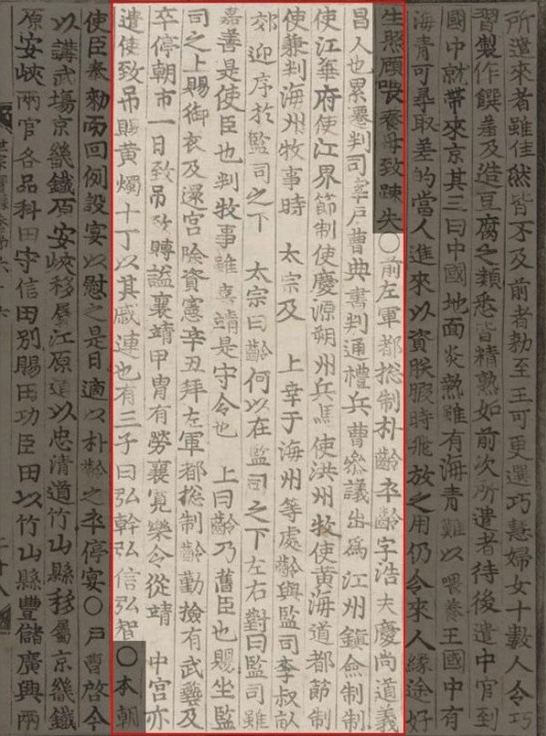 所遣來者雖佳然皆不及前者勑至王可更選巧慧婦女十數人令巧
習製作饌羞及造豆腐之類悉皆精熟如前次所遣者待後遣中官到
國中就帶來京其三曰中國地面炎熱雖有海青難以喂養王國中有
海青可尋取差的當人進來以資朕暇時飛放之用仍令來人緣途好
生照顧喂養毋致踈失○前左軍都摠制朴齡卒齡字浩夫慶尚道義
昌人也累遷判司宰戶曹典書判通禮兵曹叅議出爲江州鎭僉制制
使江華府使江界節制使慶源朔州兵馬使洪州牧使黃海道都節制
使兼判海州牧事時 太宗及 上幸于海州等處齡與監司李叔畝
郊迎序於監司之下 太宗曰齡何以在監司之下左右對曰監司雖
嘉善是使臣也判牧事雖嘉靖是守令也 上曰齡乃舊臣也賜坐監
司之上賜御衣及還宮陞資憲辛丑拜左軍都摠制齡勤儉有武藝及
卒停朝市一日致吊致賻謚襄靖甲冑有勞襄寬樂令從靖 中宮亦
遣使致吊賜黃燭十丁以其戚連也有三子曰弘幹弘信弘智○本朝
使臣奉勑而回例設宴以慰之是日適以朴齡之卒停宴○戶曹啓今
以講武場京畿鐵原安峽移屬江原道以忠清道竹山縣移屬京畿鐵
原安峽兩官各品科田守信田別賜田功臣田以竹山縣豐儲廣興兩